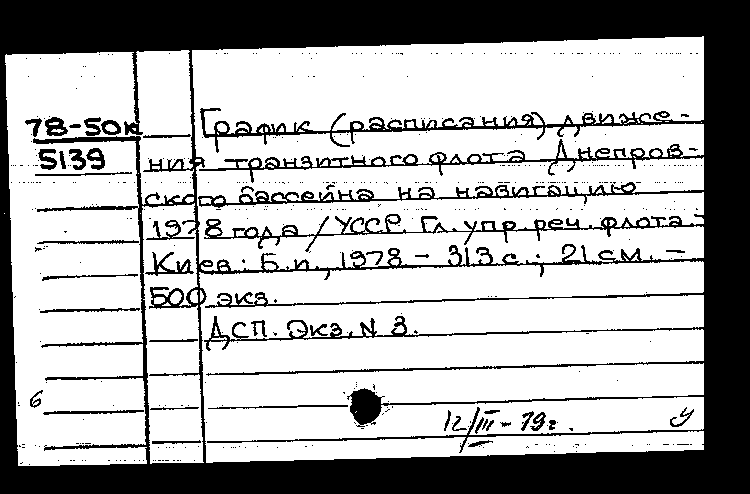 78-50к
5139
График (расписания) движе-
ния транзитного флота Днепров-
ского бассейна на навигацию
1978 года / УССР. Гл. упр. реч. флота -
Киев: Б.и., 1978 - 313 с.; 21 см. -
500 экз.
ДСП. Экз. N 3.
6
12/III - 79г.
У